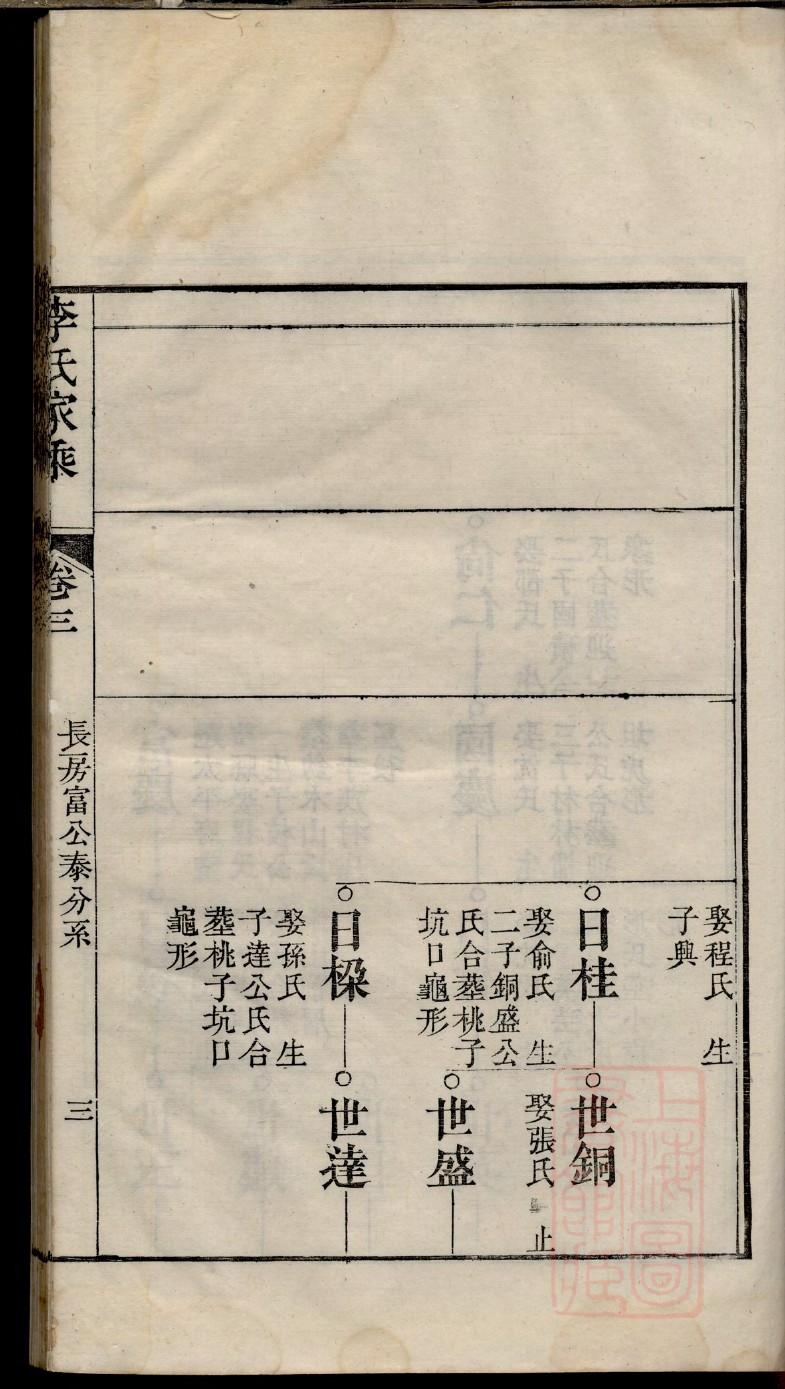 娶程氏　生
子興
日桂
娶俞氏　生
二子銅盛公
氏合塟桃子
坑口龜形
日樑
娶孫氏　生
子達公氏合
塟桃子坑口
龜形
世銅
娶張氏　止
世盛
世達
李氏家乘
卷三
長房富公泰分系
三
上海圖